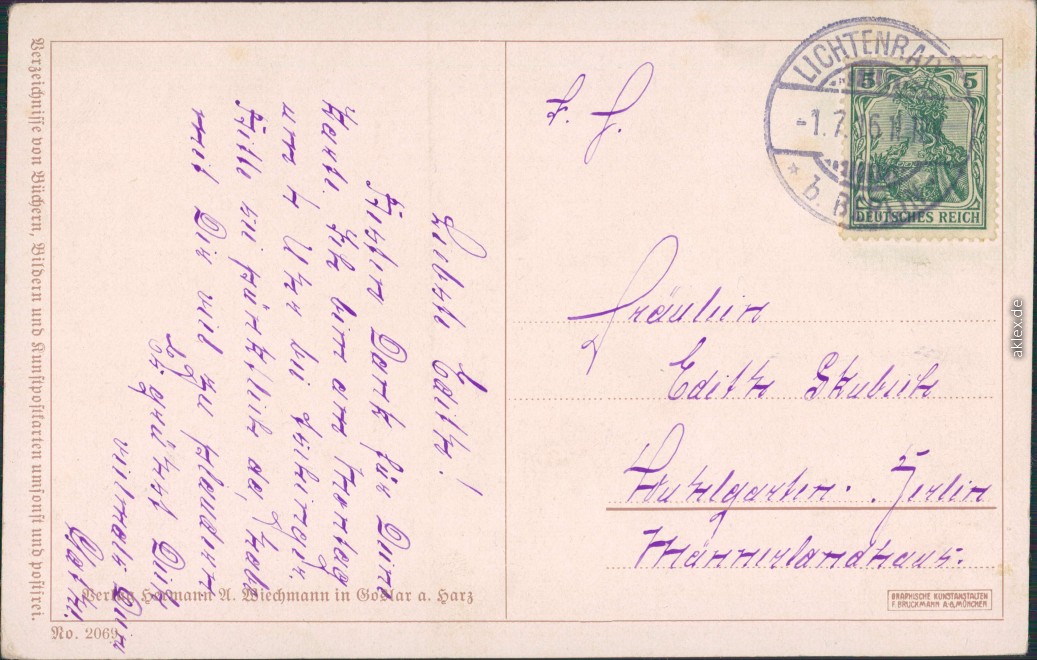 Liebste Edith!
Besten Dank für Deine
Karte. Ich bin am Montag
um 4 Uhr bei
Bitte sei pünktlich da, habe
mit Dir viel zu plaudern
Es grüßt Dich
vielmals Deine
Käthe.
F. H.
Fräulein
Edith
Wuhlgarten. Berlin
Männerlandhaus.
LICHTENRADE
-1.7. 6 N
* b. BERLIN
5 5
DEUTSCHES REICH
Verzeichnisse von Büchern, Bildern und Kunstpostkarten umsonst und postfrei.
Verlag Hermann A. Wiechmann in Goslar a. Harz
No. 2069
GRAPHISCHE KUNSTANSTALTEN
F. BRUCKMANN A-G, MÜNCHEN
aklex.de